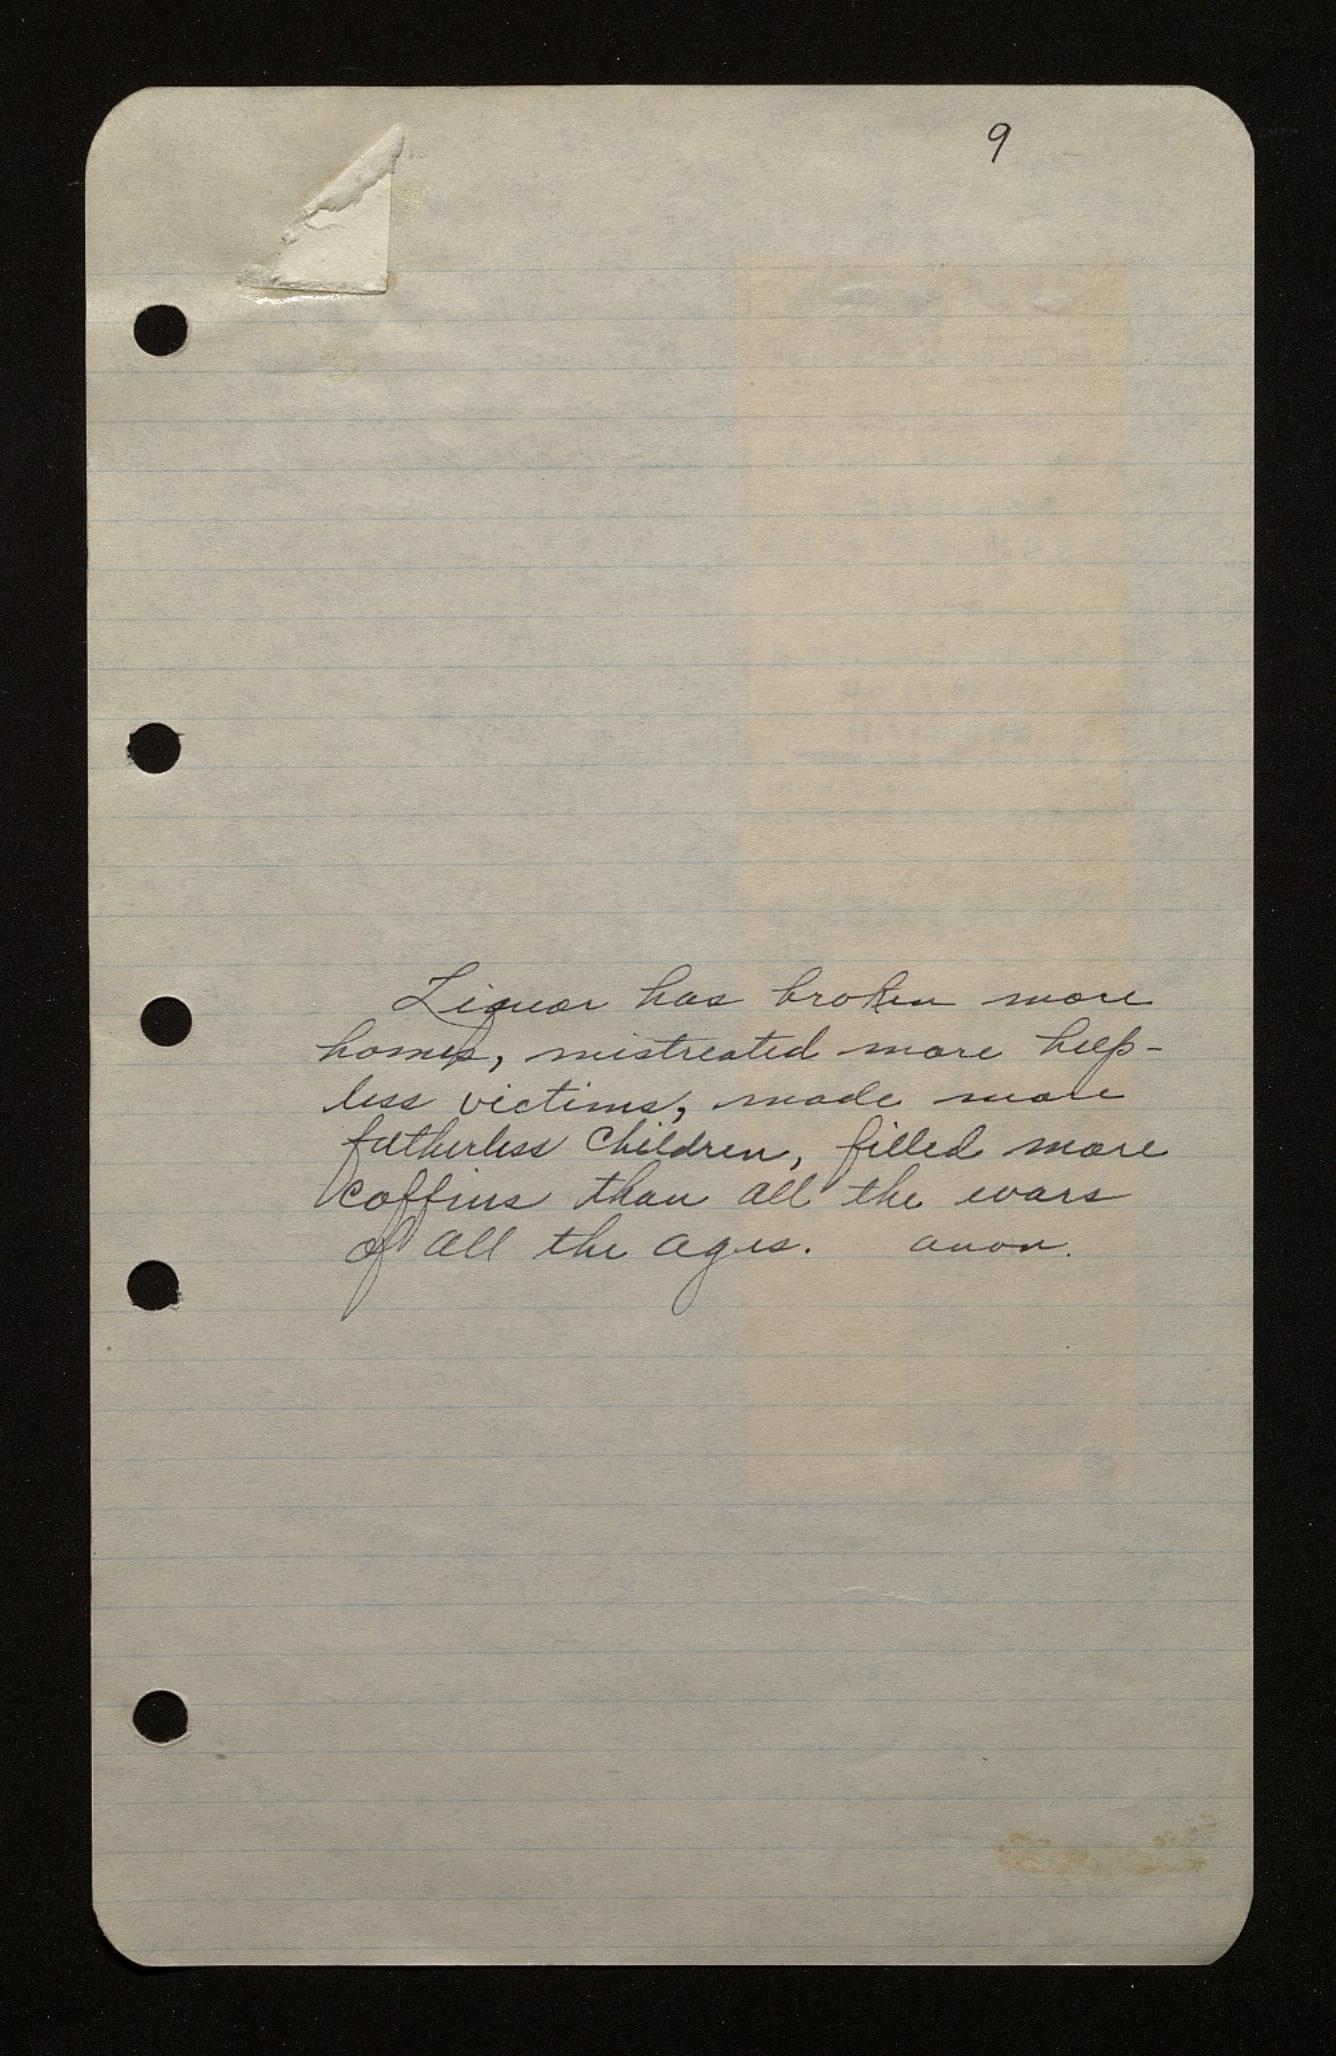 9
Liquor has broken more
homes, mistreated more help-
less victims, made more
fatherless children, filled more
coffins than all the wars
of all the ages. anon.